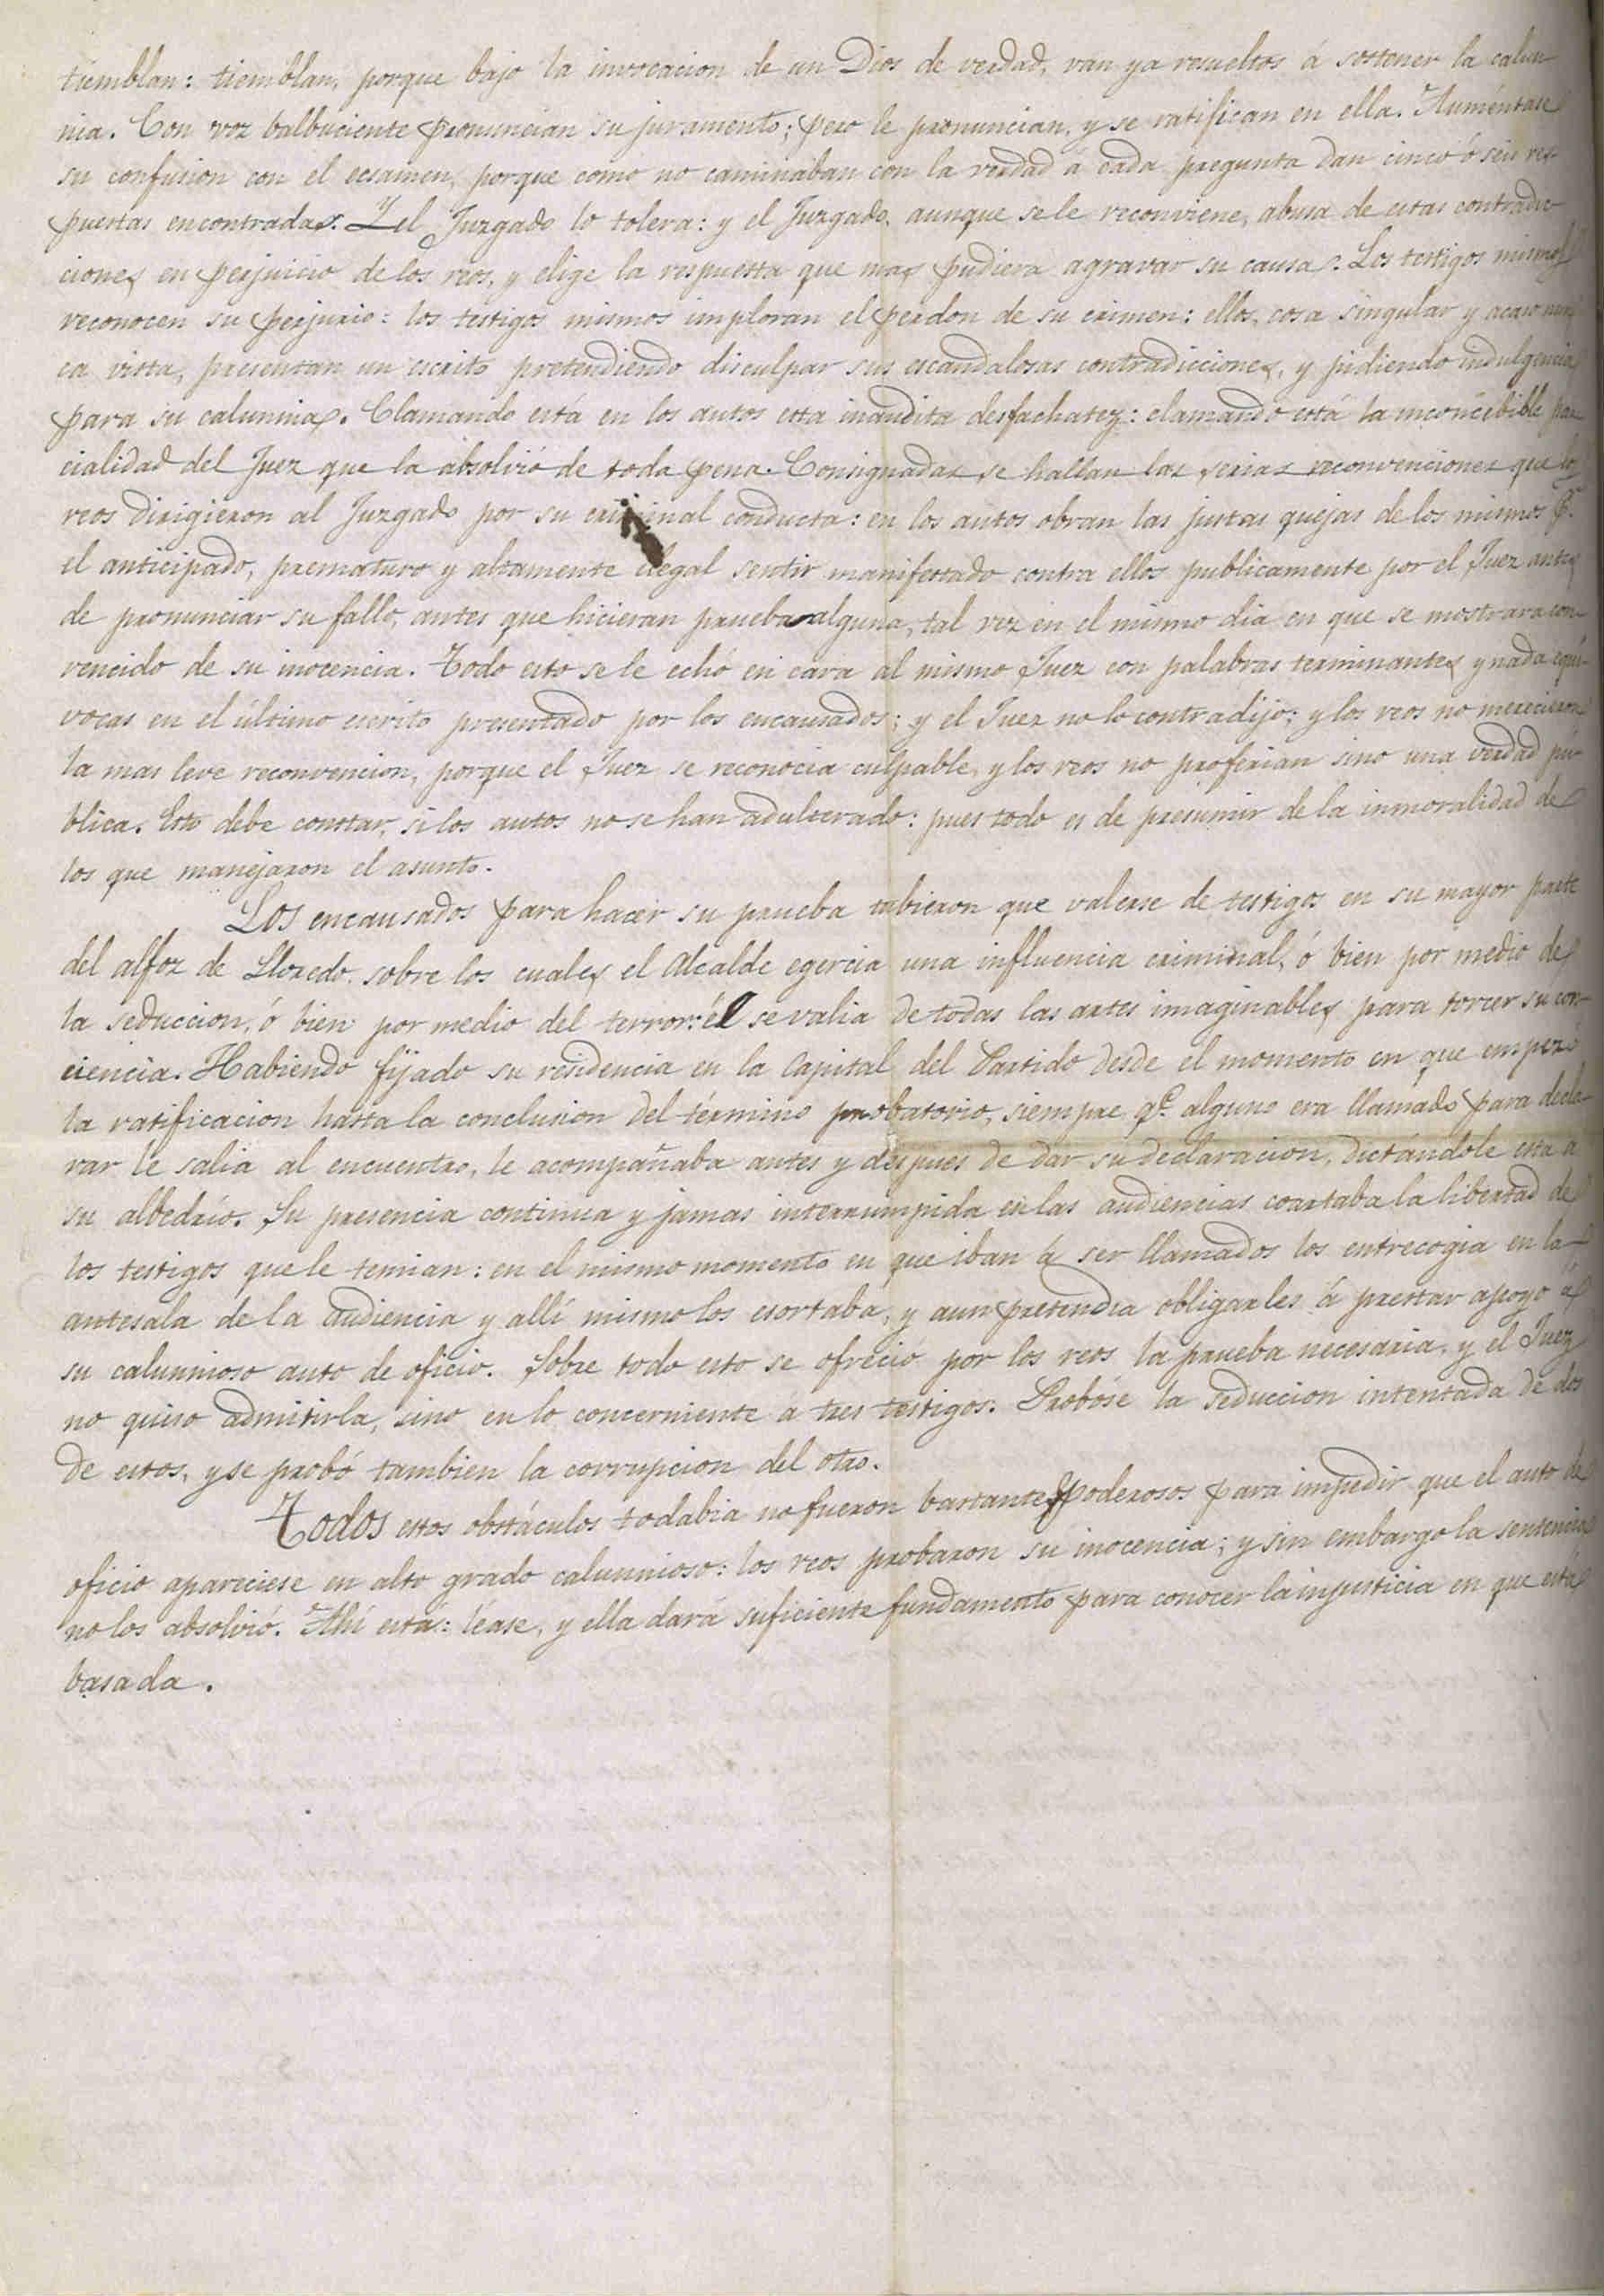 tiemblan: tiemblan, porque bajo la invocacion de un Dios de verdad, van ya resueltos á sostener la calum
nia. Con voz balbuciente pronuncian su juramento; pero le pronuncian, y se ratifican en ella. Auméntase
su confusion con el ecsamen, porque como no caminaban con la verdad á cada pregunta dan cinco ó seis res-
puestas encontradas. Y el Juzgado lo tolera: y el Juzgado, aunque se le reconviene, abusa de estas contradic
ciones en perjuicio de los reos, y elige la respuesta que mas pudiera agravar su causa. Los testigos mismos
reconocen su perjurio: los testigos mismos imploran el perdon de su crimen: ellos, cosa singular y acaso nun
ca vista, presentan un escrito pretendiendo disculpar sus escandalosas contradicciones, y pidiendo indulgencia
para su calumnia. Clamando está en los autos esta inaudita desfachatez: clamando está la inconcebible par
cialidad del Juez que la absolvió de toda pena. Consignadas se hallan las serias reconvenciones que los
reos dirigieron al Juzgado por su criminal conducta: en los autos obran las justas quejas de los mismos pr.
el anticipado, prematuro y altamente ilegal sentir manifestado contra ellos publicamente por el Juez antes
de pronunciar su fallo, antes que hicieran prueba alguna, tal vez en el mismo dia en que se mostrara con-
vencido de su inocencia. Todo esto se le echó en cara al mismo Juez con palabras terminantes y nada equi-
vocas en el último escrito presentado por los encausados; y el Juez no lo contradijo; y los reos no merecieron
la mas leve reconvencion, porque el Juez se reconocia culpable, y los reos no proferian sino una verdad pú-
blica. Esto debe constar, si los autos no se han adulterado: pues todo es de presumir de la inmoralidad de
los que manejaron el asunto.
Los encausados para hacer su prueba tubieron que valerse de testigos en su mayor parte
del alfoz de Lloredo, sobre los cuales el Alcalde egercia una influencia criminal, ó bien por medio de
la seduccion, ó bien por medio del terror: él se valia de todas las artes imaginables para torcer su con-
ciencia. Habiendo fijado su residencia en la Capital del Partido desde el momento en que empezó
la ratificacion hasta la conclusion del término probatorio, siempre qe. alguno era llamado para decla-
rar le salia al encuentro, le acompañaba antes y despues de dar su declaracion, dictándole esta a
su albedrío. Su presencia continua y jamas interrumpida en las audiencias coartaba la libertad de
los testigos que le temian: en el mismo momento en que iban á ser llamados los entrecogia en la
antesala de la audiencia y allí mismo los esortaba, y aun pretendia obligarles á prestar apoyo á
su calumnioso auto de oficio. Sobre todo esto se ofreció por los reos la prueba necesaria, y el Juez
no quiso admitirla, sino en lo concerniente a tres testigos. Probóse la seduccion intentada de dos
de estos, y se probó tambien la corrupcion del otro.
Todos estos obstáculos todabia no fueron bastantes poderosos para impedir que el auto de
oficio apareciese en alto grado calumnioso: los reos probaron su inocencia; y sin embargo la sentencia
no los absolvió. Ahí está: léase, y ella dará suficiente fundamento para conocer la injusticia en que está
basada.